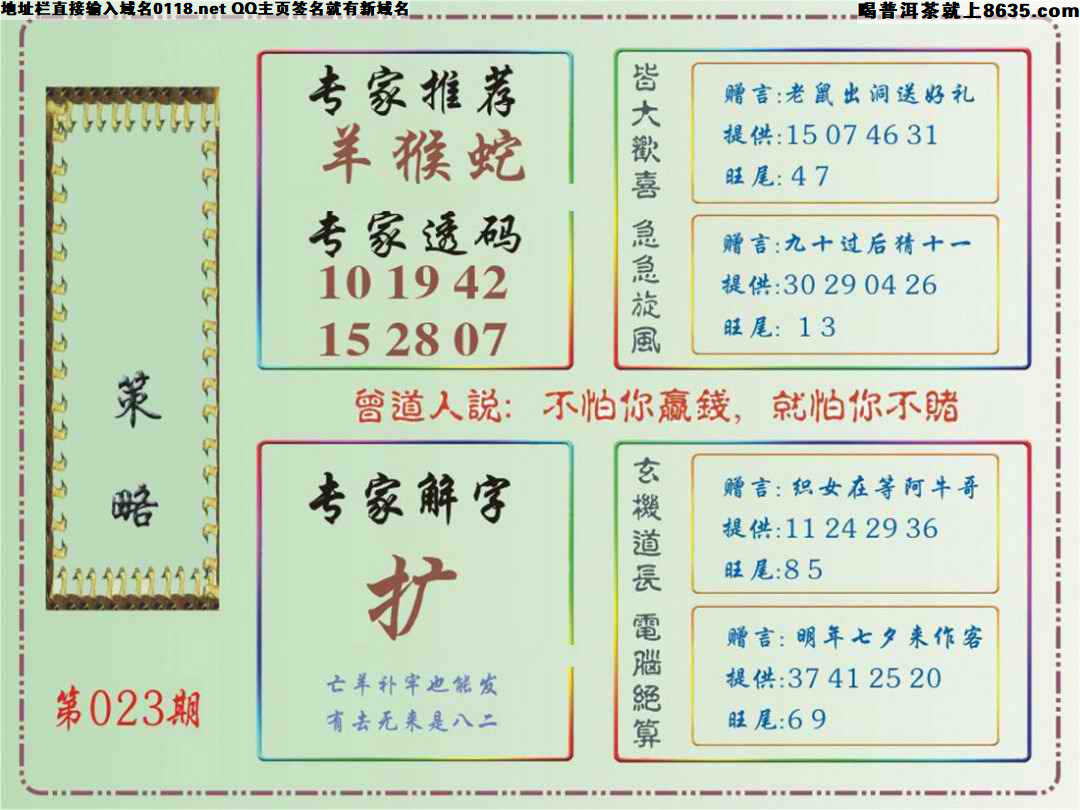 地址栏直接输入域名0118.net QQ主页签名就有新域名
喝普洱茶就上8635.com
策略
第023期
专家推荐
羊猴蛇
专家透码
10 19 42
15 28 07
皆大歡喜
赠言:老鼠出洞送好礼
提供:15 07 46 31
旺尾: 4 7
急急旋風
赠言:九十过后猜十一
提供:30 29 04 26
旺尾: 1 3
曾道人説: 不怕你贏錢, 就怕你不賭
专家解字
扩
亡羊补牢也能发
有去无来是八二
玄機道長
赠言: 织女在等阿牛哥
提供:11 24 29 36
旺尾:8 5
電腦絕算
赠言: 明年七夕来作客
提供:37 41 25 20
旺尾:6 9